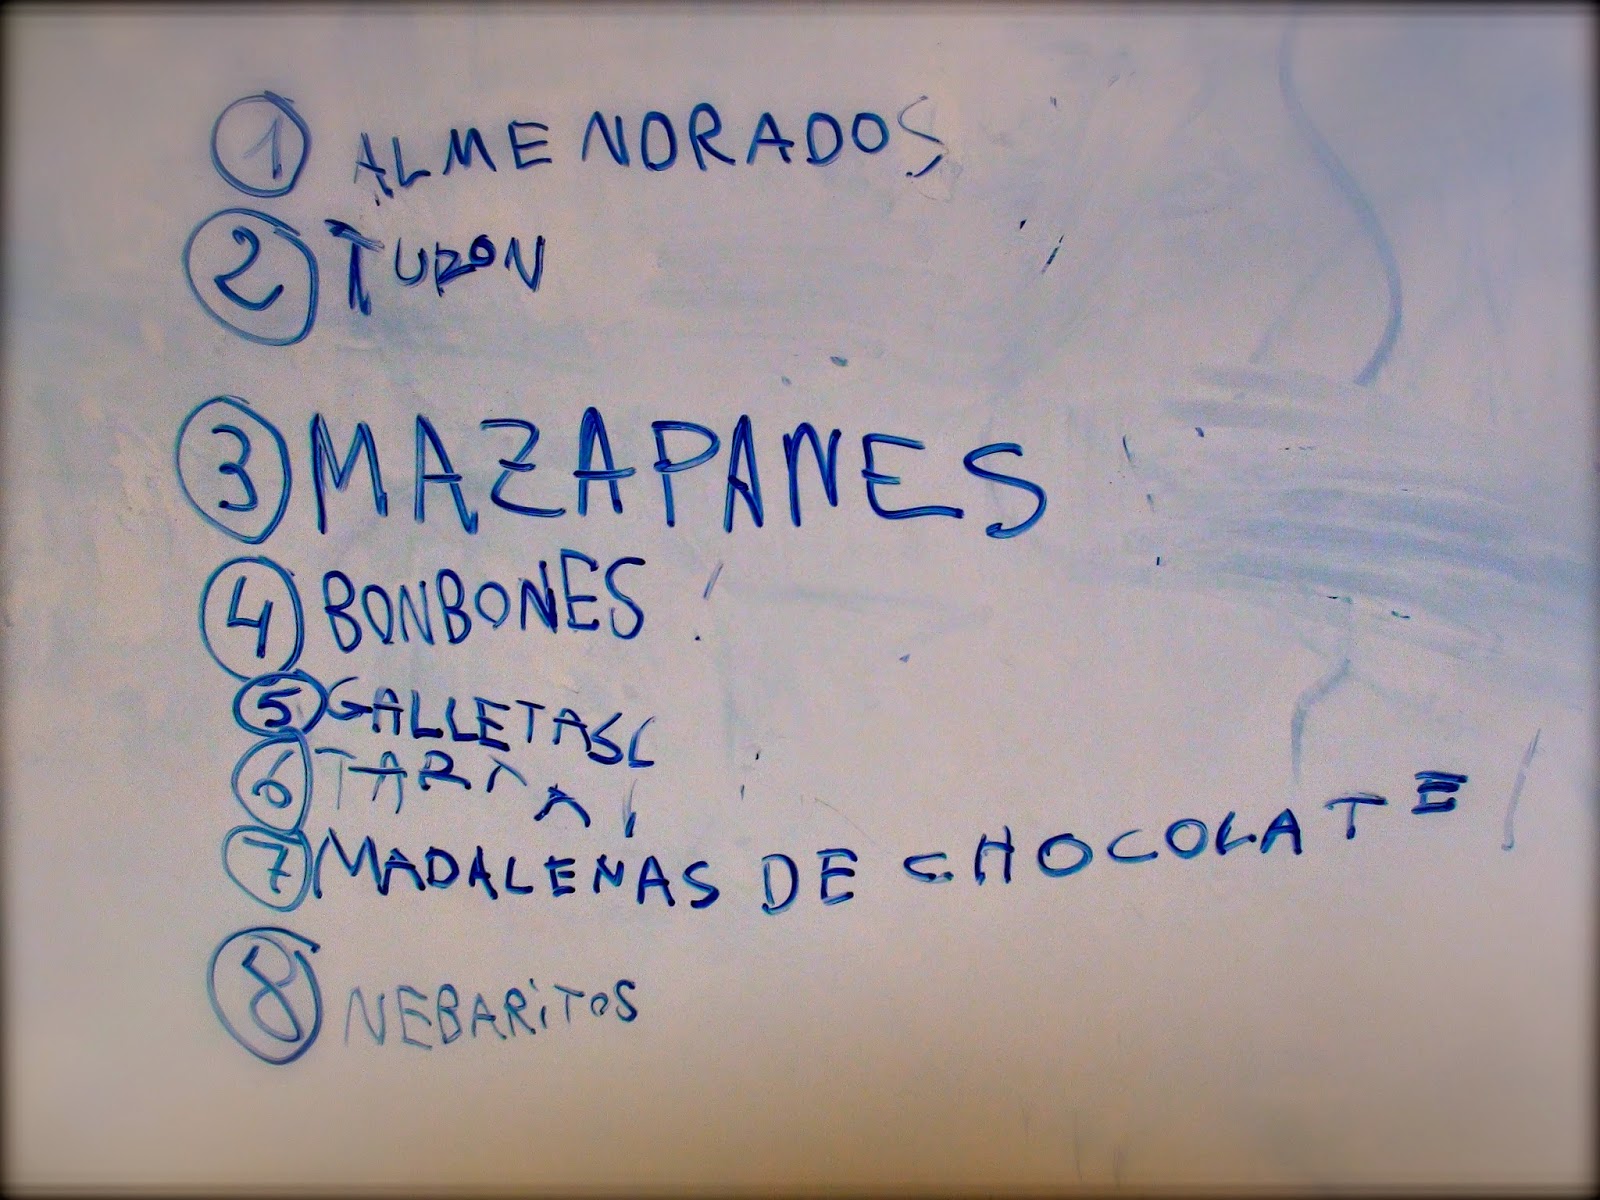 1 ALMENDRADOS
2 TURON
3 MAZAPANES
4 BONBONES !
5 GALLETAS
6 TARTA
7 MADALENAS DE CHOCOLATE !
8 NEBARITOS